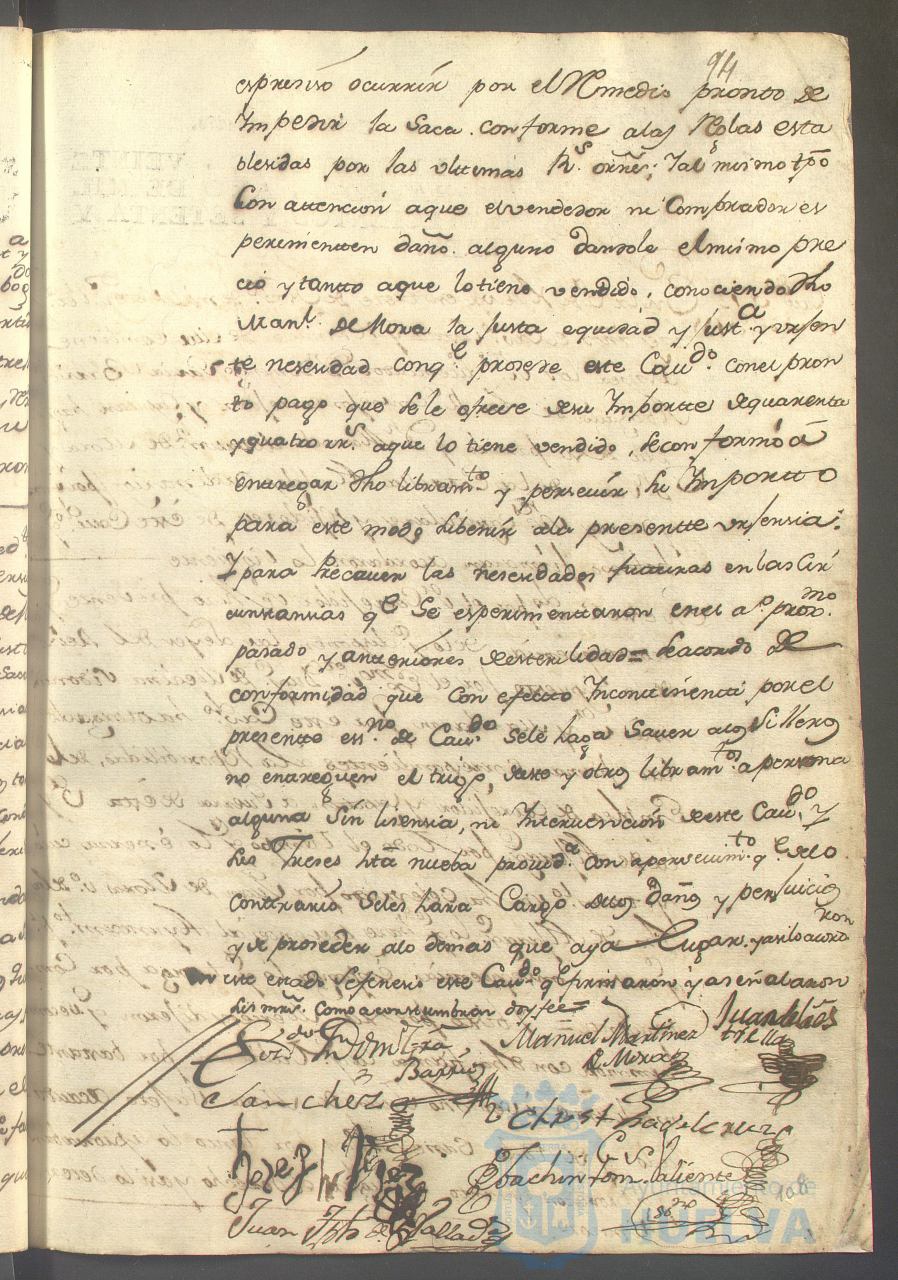 94
espresivo ocurrir por el Remedio pronto de
Impedir la saca conforme a las Reglas esta
blesidas por las ultimas Rs. ordns; y al mismo tpo
Con attencion a que el vendedor ni Comprador es
perimenten daño alguno dandole el mismo pre
cio y tanto a que lo tiene vendido, conociendo dho
Manl. de Mora la justa equidad y justa. y vrjen
te nesesidad con qe. prosede este Cavdo. con el pron
to pago que se le ofrese de su Importte de quarenta
y quatro rrs. a que lo tiene vendido, se conformó â
entregar dho libramto. y persevir su Importto
para este modo subenir a la presentte vrjensia.
Y para Precauer las nesesidades futuras en las Cir
cunstansias qe. Se esperimentaron en el aº. proxmo.
pasado y antteriores de esterilidad = se acordó de
conformidad que Con efecto Incontinenti por el
presentte essno. de Cavdo. se le haga Saver a los Silleros
no entreguen el trigo, deste y otros libramtos. a persona
alguna Sin lisensia, ni Intervención de este Cavdo. y
sus Jueses hta nueba provida. con apersevimto. qe. de lo
contrario Se les hara Cargo de los daños y perjuicios
y de proseder a lo demas que aya Lugar. y asi lo acordaron
en este estado se feneció este Cavdo. qe. firmaron y aseñalaron
sus mrds. como acostumbran doy fee =
Manuel Martinez
de Mora
Juan de
trilla
Barrios
Sanchez
Christ. de la cruz
Joachin Valiente
Perez
Juan de
Ayuntamiento de
HUELVA